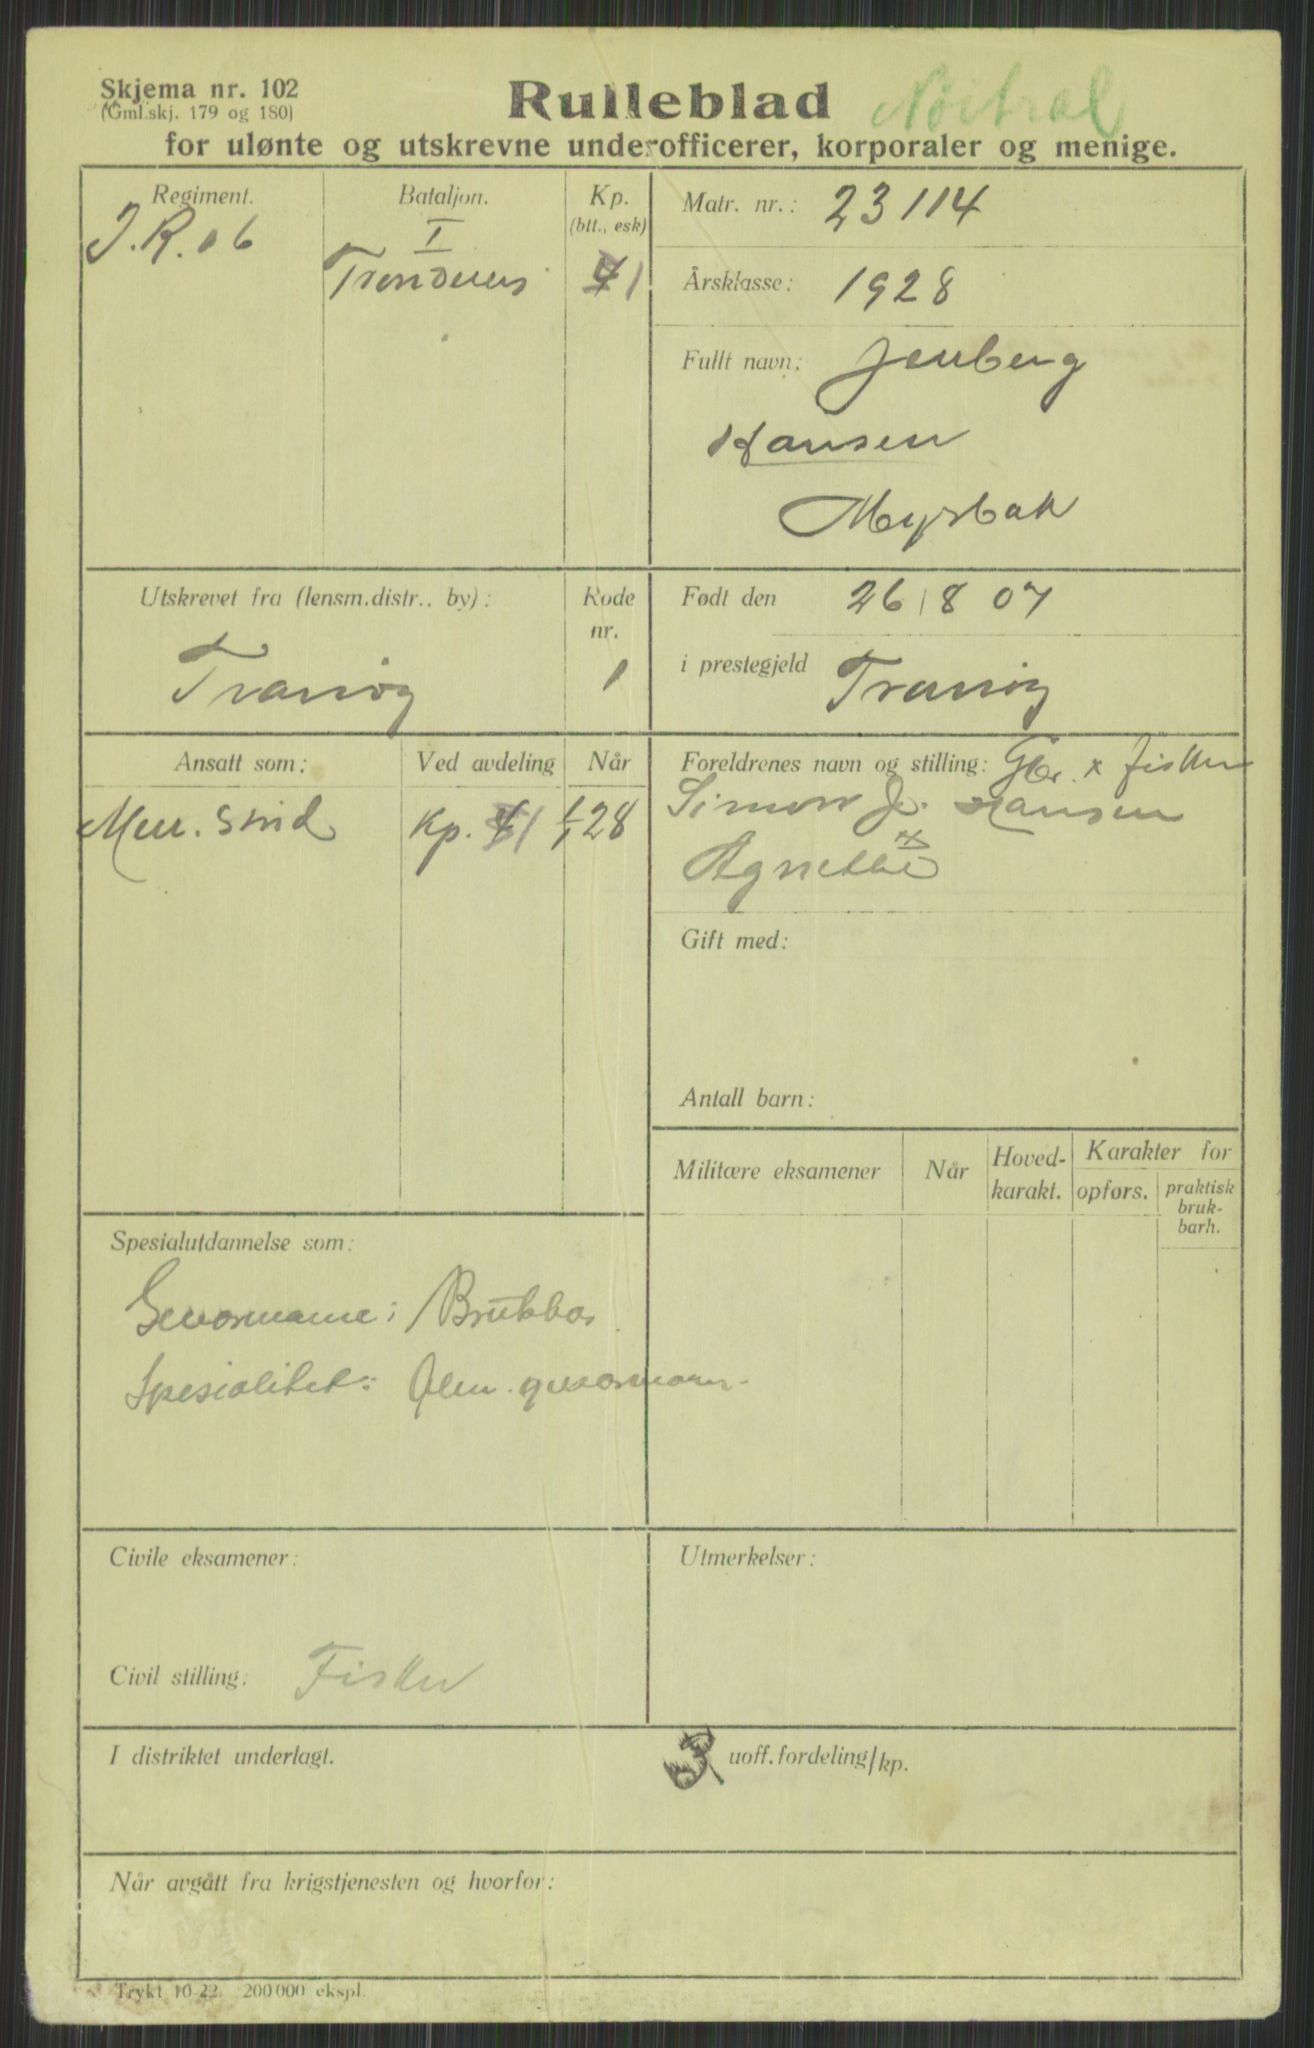 Skjema nr. 102
(Gml.skj. 179 og 180)
Rulleblad
for ulønte og utskrevne underofficerer, korporaler og menige.
Regiment.
J.R. 16
Bataljon.
I
Trondenes
Kp.
(btt., esk)
1
Matr. nr.: 23114
Årsklasse: 1928
Fullt navn: Jenberg
Hansen
Myrbak
Utskrevet fra (lensm.distr., by):
Tranøy
Rode
nr.
1
Født den 26/8 07
i prestegjeld Tranøy
Ansatt som:
Men. sold
Ved avdeling
Kp. 1
Når
1/1 28
Foreldrenes navn og stilling: Gbr. x fisker
Simon J. Hansen
x
Agnethe
Gift med:
Antall barn:
Militære eksamener
Når
Hoved-
karakt.
Karakter for
opførs.
praktisk
bruk-
barh.
Spesialutdannelse som:
Gevormanne: Brukbar
Spesialitet: Alm. gevormann.
Civile eksamener:
Civil stilling: Fisker
Utmerkelser:
I distriktet underlagt.
3 uoff.fordeling/kp.
Når avgått fra krigstjenesten og hvorfor:
Trykt 10 22. 200 000 ekspl.